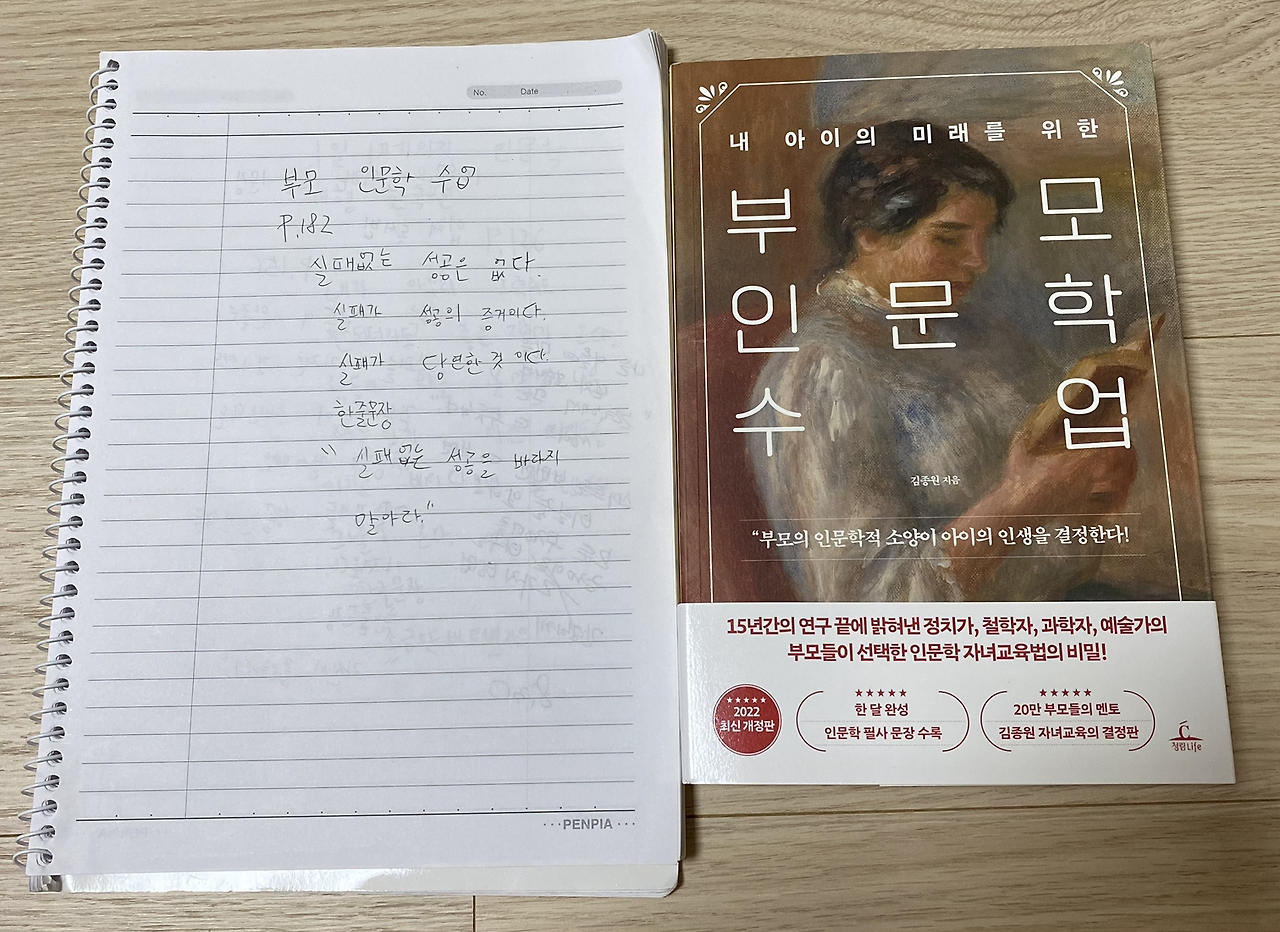 No. Date
부모 인문학 수업
P.182
실패없는 성공은 없다.
실패가 성공의 증거이다.
실패가 당연한 것 이다.
한줄문장
"실패없는 성공을 바라지
말아라."
PENPIA
내 아이의 미래를 위한
부모
인문학
수업
김종원 지음
"부모의 인문학적 소양이 아이의 인생을 결정한다!
15년간의 연구 끝에 밝혀낸 정치가, 철학자, 과학자, 예술가의
부모들이 선택한 인문학 자녀교육법의 비밀!
2022
최신 개정판
한 달 완성
인문학 필사 문장 수록
20만 부모들의 멘토
김종원 자녀교육의 결정판
청림Life